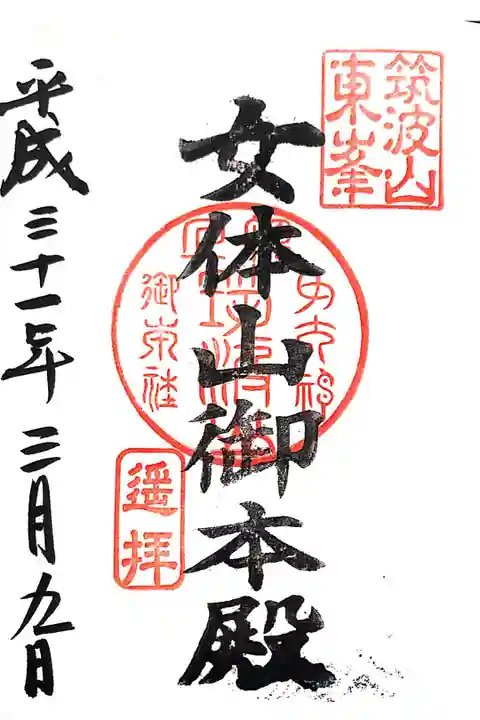 筑波山
東峯
女体山御本殿
遥拝
平成三十一年三月九日